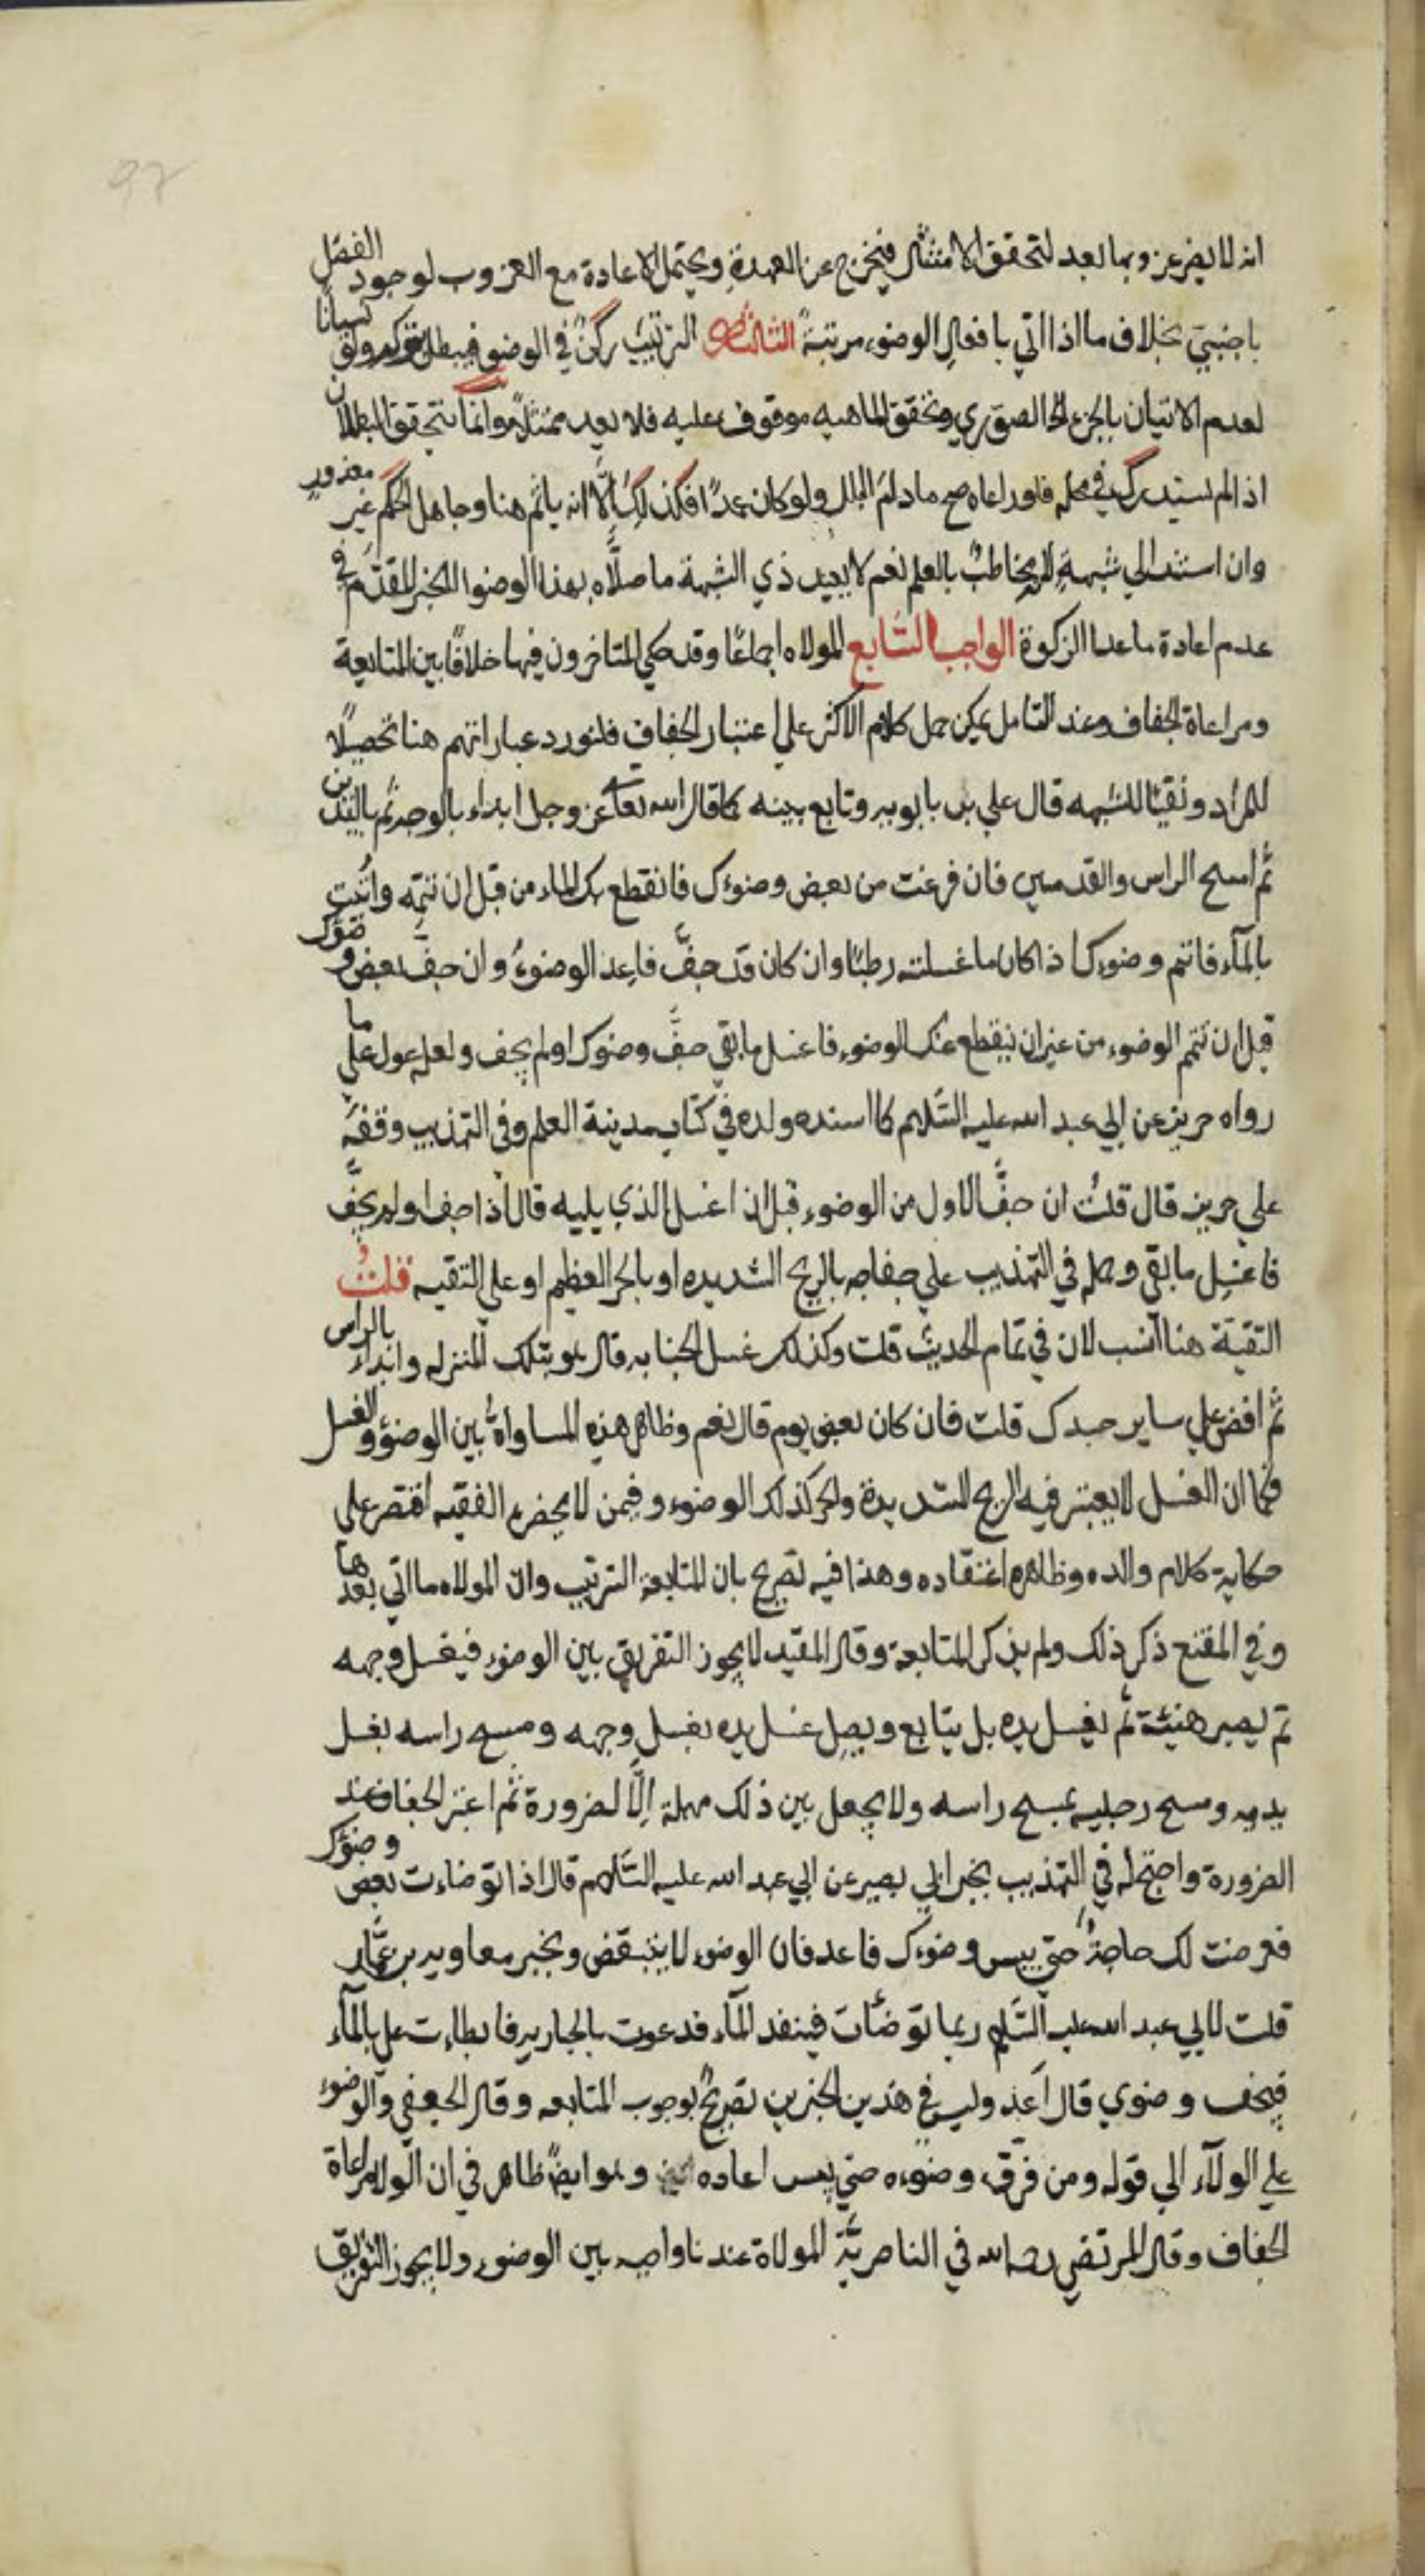 97
انه لا يضر عزوبها بعد لتحقق الامتثال فيخرج عن العهدة ويحتمل الاعادة مع العزوب لوجود الفصل
باجنبي بخلاف ما اذا اتي بافعال الوضوء مرتبة الثالثة الترتيب ركن في الوضو فيبطل بتركه ولو نسيانا
لعدم الاتيان بالجزء الصوري وتحقق الماهيه موقوف عليه فلا يعد ممتثلا وانما يتحقق البطلان
اذا لم يستدرك في محله فلو راعاه صح ما دام البلل ولو كان عمدا فكذلك الا انه ياثم هنا وجاهل الحكم غير معذور
وان استند الي شبهة لانه مخاطب بالعلم نعم لا يعيد ذي الشبهة ما صلاه بهذا الوضوا للخبر المقدم في
عدم اعادة ما عدا الزكوة الواجب السابع المولاه اجماعا وقد حكي المتاخرون فيها خلافا بين المتابعة
ومراعاة الجفاف وعند التامل يمكن حمل كلام الاكثر علي اعتبار الجفاف فلنورد عباراتهم هنا تحصيلا
للمراد ونفيا للشبهه قال علي بن بابويه وتابع بينه كما قال الله تعا عز وجل ابداء بالوجه ثم باليدين
ثم امسح الراس والقدمين فان فرغت من بعض وضوءك فانقطع بك الماء من قبل ان تتمه واتيت
بالمآء فاتم وضوءك اذا كان ما غسلته رطبا وان كان قد جف فاعد الوضوء وان جف بعض وضؤك
قبل ان تتم الوضوء من غير ان ينقطع عنك الوضوء فاغسل ما بقي جف وضوك او لم يجف ولعله عول علي ما
رواه حريز عن ابي عبد الله عليه السلام كما اسنده ولده في كتاب مدينة العلم وفي التهذيب وقفه
علي حريز قال قلت ان جف الاول من الوضوء قبل ان اغسل الذي يليه قال اذا جف او لم يجف
فاغسل ما بقي وحمله في التهذيب علي جفافه بالريح الشديده او بالحر العظيم او علي التقيه قلت
التقية هنا انسب لان في تمام الحديث قلت وكذلك غسل الجنابه قال هو بتلك المنزله وابداء بالراس
ثم افض علي ساير جسدك قلت فان كان بعض يوم قال نعم وظاهر هذه المساواة بين الوضوء والغسل
فكما ان الغسل لا يعتبر فيه الريح الشديدة والحر كذلك الوضوء وفيمن لا يحضره الفقيه اقتصر علي
حكاية كلام والده وظاهره اعتقاده وهذا فيه تصريح بان المتابعة الترتيب وان المولاه ما اتي بعدها
وفي المقنع ذكر ذلك ولم يذكر المتابعة وقال المفيد لا يجوز التفريق بين الوضوء فيغسل وجهه
ثم يصبر هنيئة ثم يغسل يده بل يتابع ويصل غسل يده بغسل وجهه ومسح راسه بغسل
يديه ومسح رجليه بمسح راسه ولا يجعل بين ذلك مهلة الا لضرورة ثم اعتبر الجفاف عند
الضرورة واحتج له في التهذيب بخبر ابي بصير عن ابي عبد الله عليه السلام قال اذا توضاءت بعض وضؤك
فعرضت لك حاجة حتي يبس وضوءك فاعد فان الوضوء لا يتبعض وبخبر معاويه بن عمار
قلت لابي عبد الله عليه السلام ربما توضأت فينفد المآء فدعوت بالجاريه فابطاءت علي بالمآء
فيجف وضوي قال اعد وليس في هذين الخبرين تصريح بوجوب المتابعه وقال الجعفي والوضوء
علي الولآء الي قوله ومن فرق وضوءه حتي يبس اعاده وهو ايضا ظاهر في ان الولاء مراعاة
الجفاف وقال المرتضي رحمه الله في الناصرية الموالاة عندنا واجبه بين الوضوء ولا يجوز التفريق